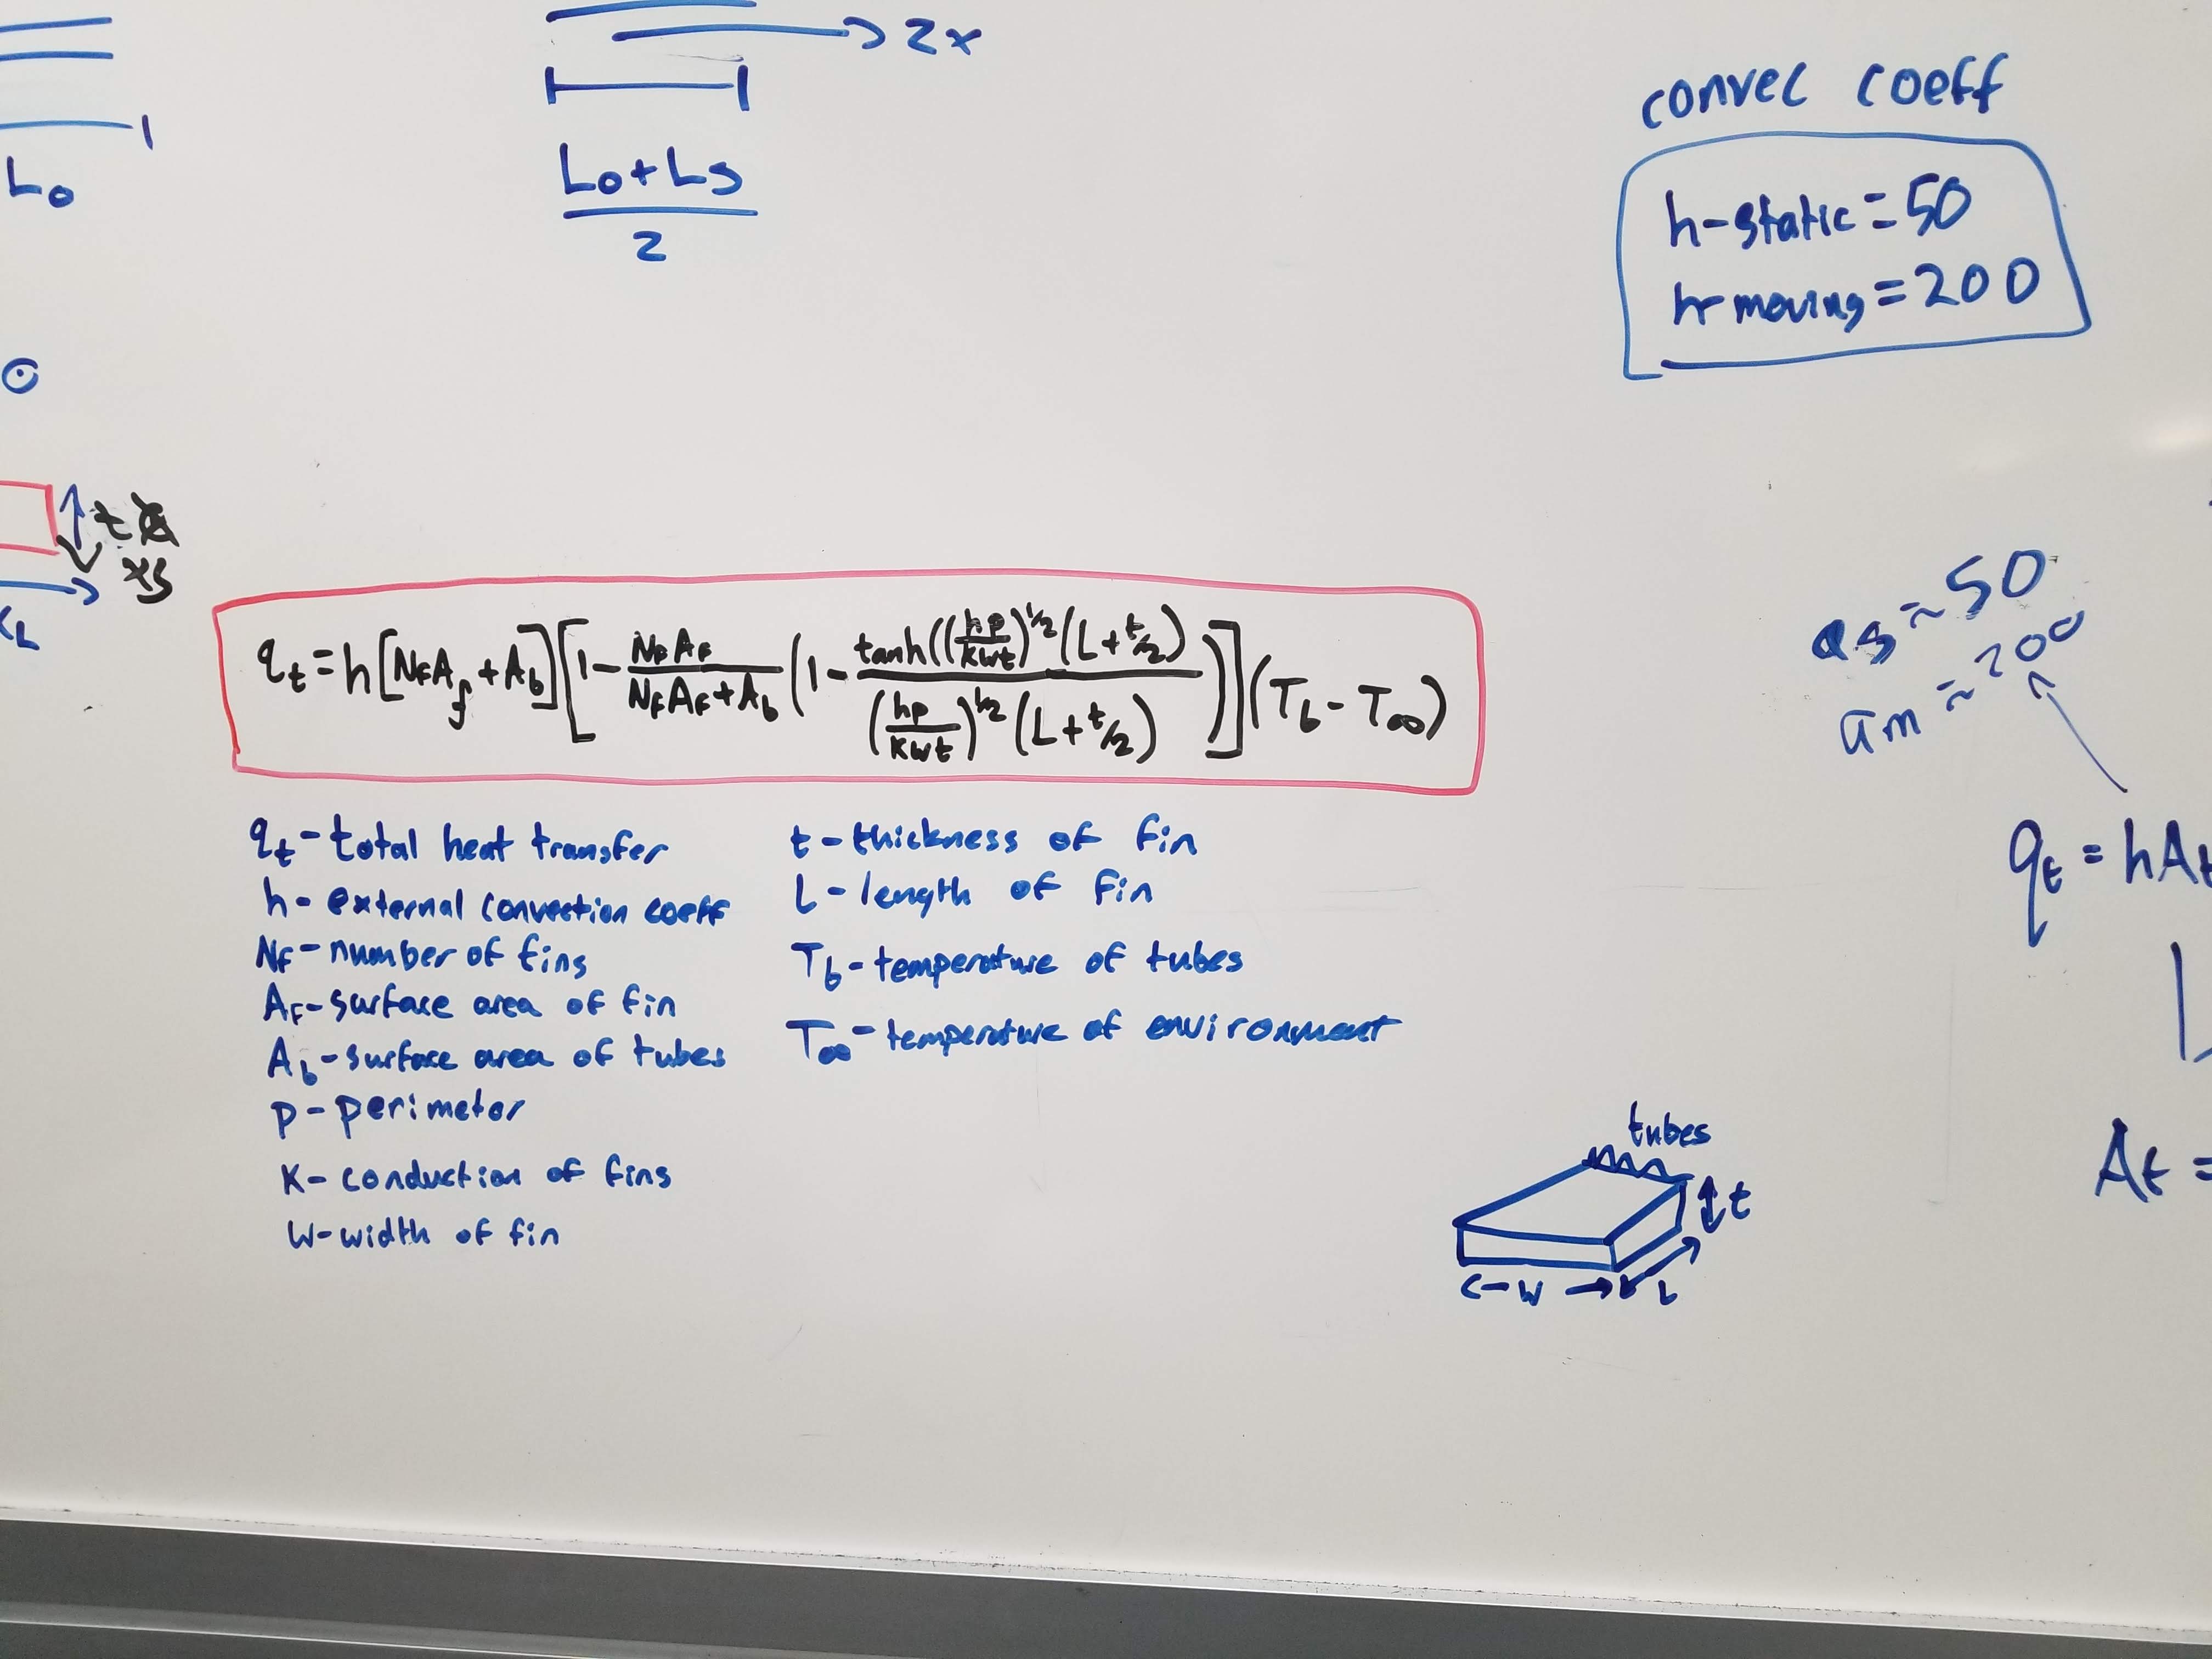 → 2x
L0
L0+Ls
2
convec coeff
h-static=50
h-moving=200
t
xs
qt=h[NfAf+Ab][1-NfAf/NfAf+Ab(1-tanh((hp/kwt)^1/2(L+t/2)/(hp/kwt)^1/2(L+t/2))](Tb-T∞)
as≈50
am≈200
qt=hAt
At=
qt-total heat transfer
h-external convection coeff
Nf-number of fins
Af-surface area of fin
Ab-surface area of tubes
p-perimetor
K-conduction of fins
W-width of fin
t-thickness of fin
L-length of fin
Tb-temperature of tubes
T∞-temperature of environment
tubes
t
w
L